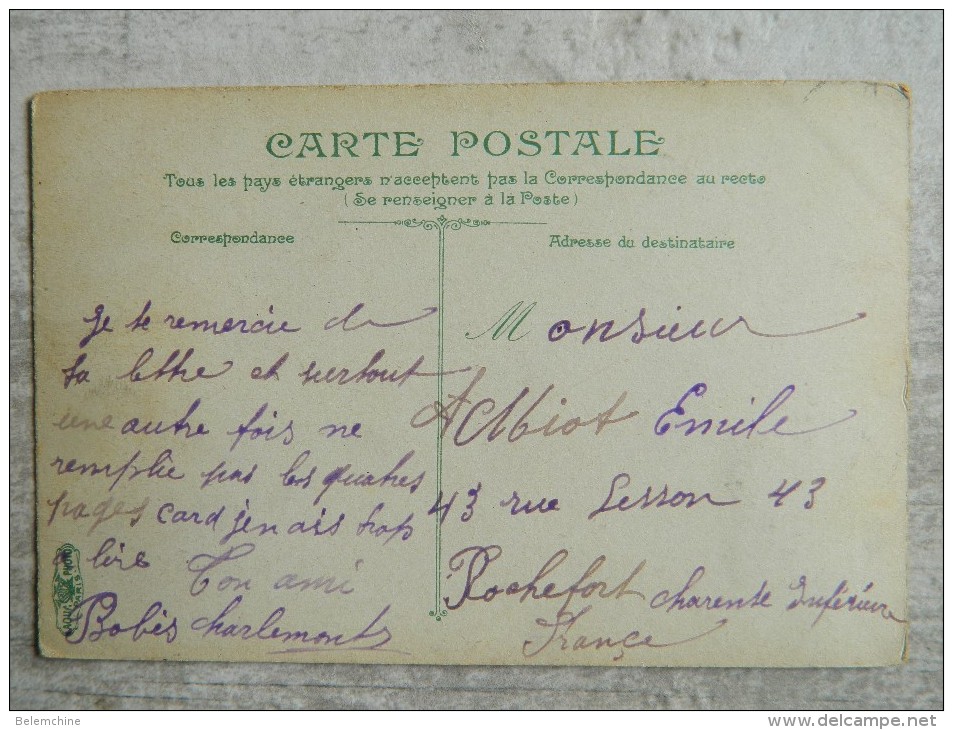 CARTE POSTALE
Tous les pays étrangers n'acceptent pas la Correspondance au recto
(Se renseigner à la Poste)
Correspondance
Adresse du destinataire
je te remercie de
ta lettre et surtout
une autre fois ne
remplie pas les quatres
pages card jen ais trop
a lire
Ton ami
Bobès Charlemont
Monsieur
Emile
43 rue Lesson 43
Rochefort charente Inférieure
France
PARIS
Belemchine
www.delcampe.net